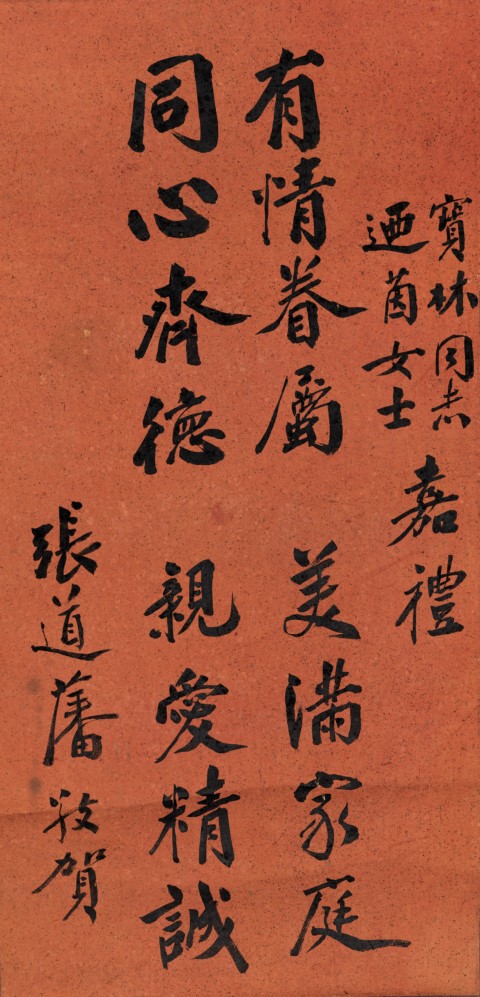 寶林同志
迺茵女士
嘉禮
有情眷屬 美滿家庭
同心齊德 親愛精誠
張道藩敬賀